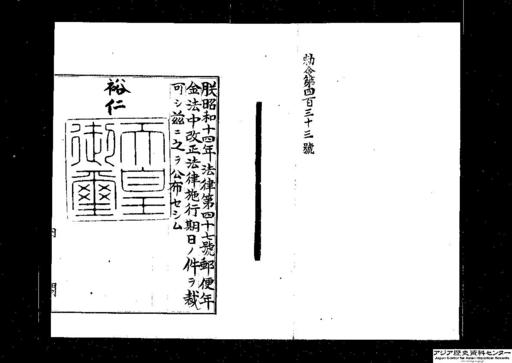 勅令第四百三十三號
朕昭和十四年法律第四十七號郵便年
金法中改正法律施行期日ノ件ヲ裁
可シ茲ニ之ヲ公布セシム
裕仁
天皇
御璽
内
閣
アジア歴史資料センター
Japan Center for Asian Historical Records